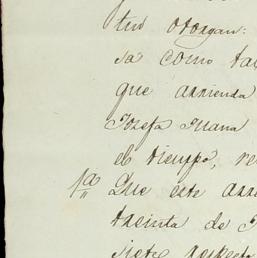 otorgan:
sa como
que arrienda
Jozefa Juana
el tiempo, re
1ª Que este arre
treinta de
siete respecto